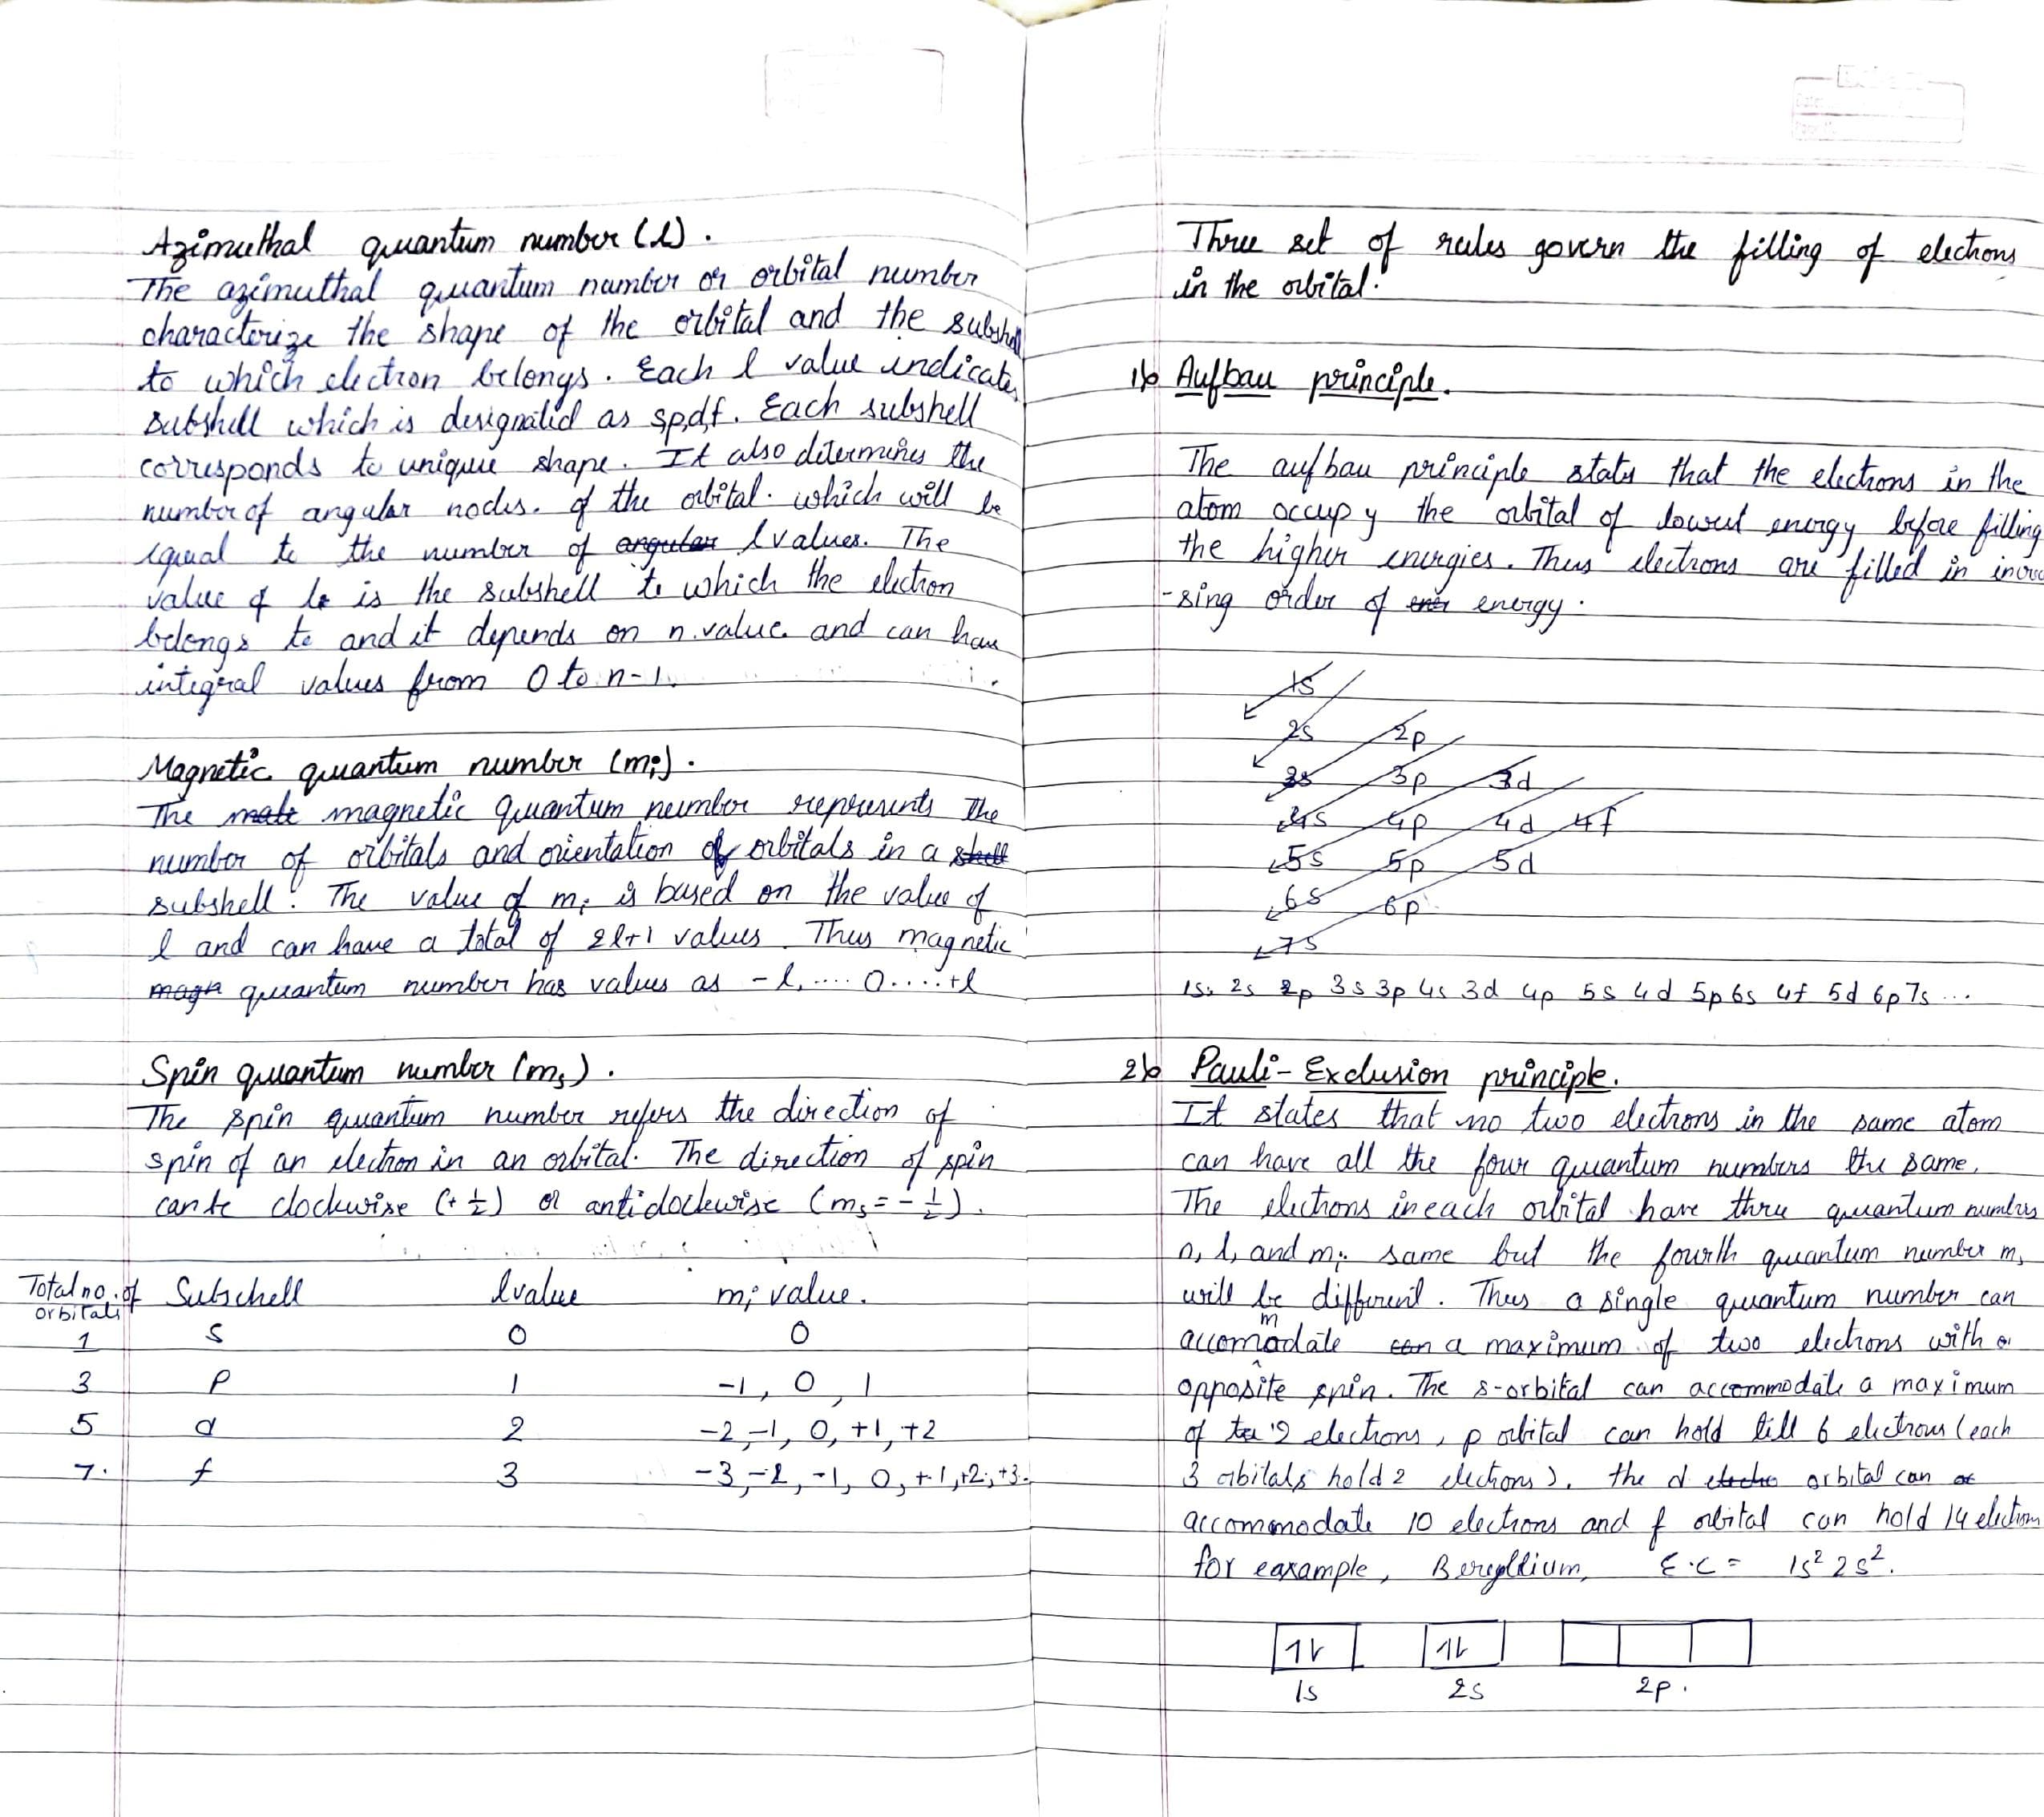 Azimuthal quantum number (l).
The azimuthal quantum number or orbital number
characterize the shape of the orbital and the subshell
to which electron belongs. Each l value indicates
subshell which is designated as sp,d,f. Each subshell
corresponds to unique shape. It also determines the
number of angular nodes. of the orbital. which will be
equal to the number of angular l values. The
value of l is the subshell to which the electron
belongs to and it depends on n.value and can have
integral values from 0 to n-1.
Magnetic quantum number (mi).
The mate magnetic quantum number represents the
number of orbitals and orientation of orbitals in a shell
subshell. The value of mi is based on the value of
l and can have a total of 2l+1 values. Thus magnetic
magn quantum number has values as -l,....0.....+l
Spin quantum number (ms).
The spin quantum number refers the direction of
spin of an electron in an orbital. The direction of spin
can be clockwise (+1/2) or anticlockwise (ms = -1/2).
Total no. of orbitals Subschell l value mi value.
1 s 0 0
3 p 1 -1, 0, 1
5 d 2 -2,-1, 0, +1, +2
7. f 3 -3,-2, -1, 0, +1,+2,+3.
Three set of rules govern the filling of elections
in the orbital.
1) Aufbau principle.
The aufbau principle states that the elections in the
atom occupy the orbital of lowest energy before filling
the higher energies. Thus electrons are filled in increa
-sing order of ener energy.
1s
2s 2p
3s 3p 3d
4s 4p 4d 4f
5s 5p 5d
6s 6p
7s
1s, 2s 2p 3s 3p 4s 3d 4p 5s 4d 5p 6s 4f 5d 6p 7s ...
2) Pauli-Exclusion principle.
It states that no two electrons in the same atom
can have all the four quantum numbers the same.
The electrons in each orbital have three quantum numbers
n, l, and mi same but the fourth quantum number ms
will be different. Thus a single quantum number can
accommodate can a maximum of two elections with a
opposite spin. The s-orbital can accommodate a maximum
of 2 elections, p orbital can hold till 6 electrons (each
3 orbitals hold 2 elections), the d electro orbital can
accommodate 10 elections and f orbital can hold 14 election
for eaxample, Bereyllium, E.C = 1s² 2s².
1s 2s 2p.